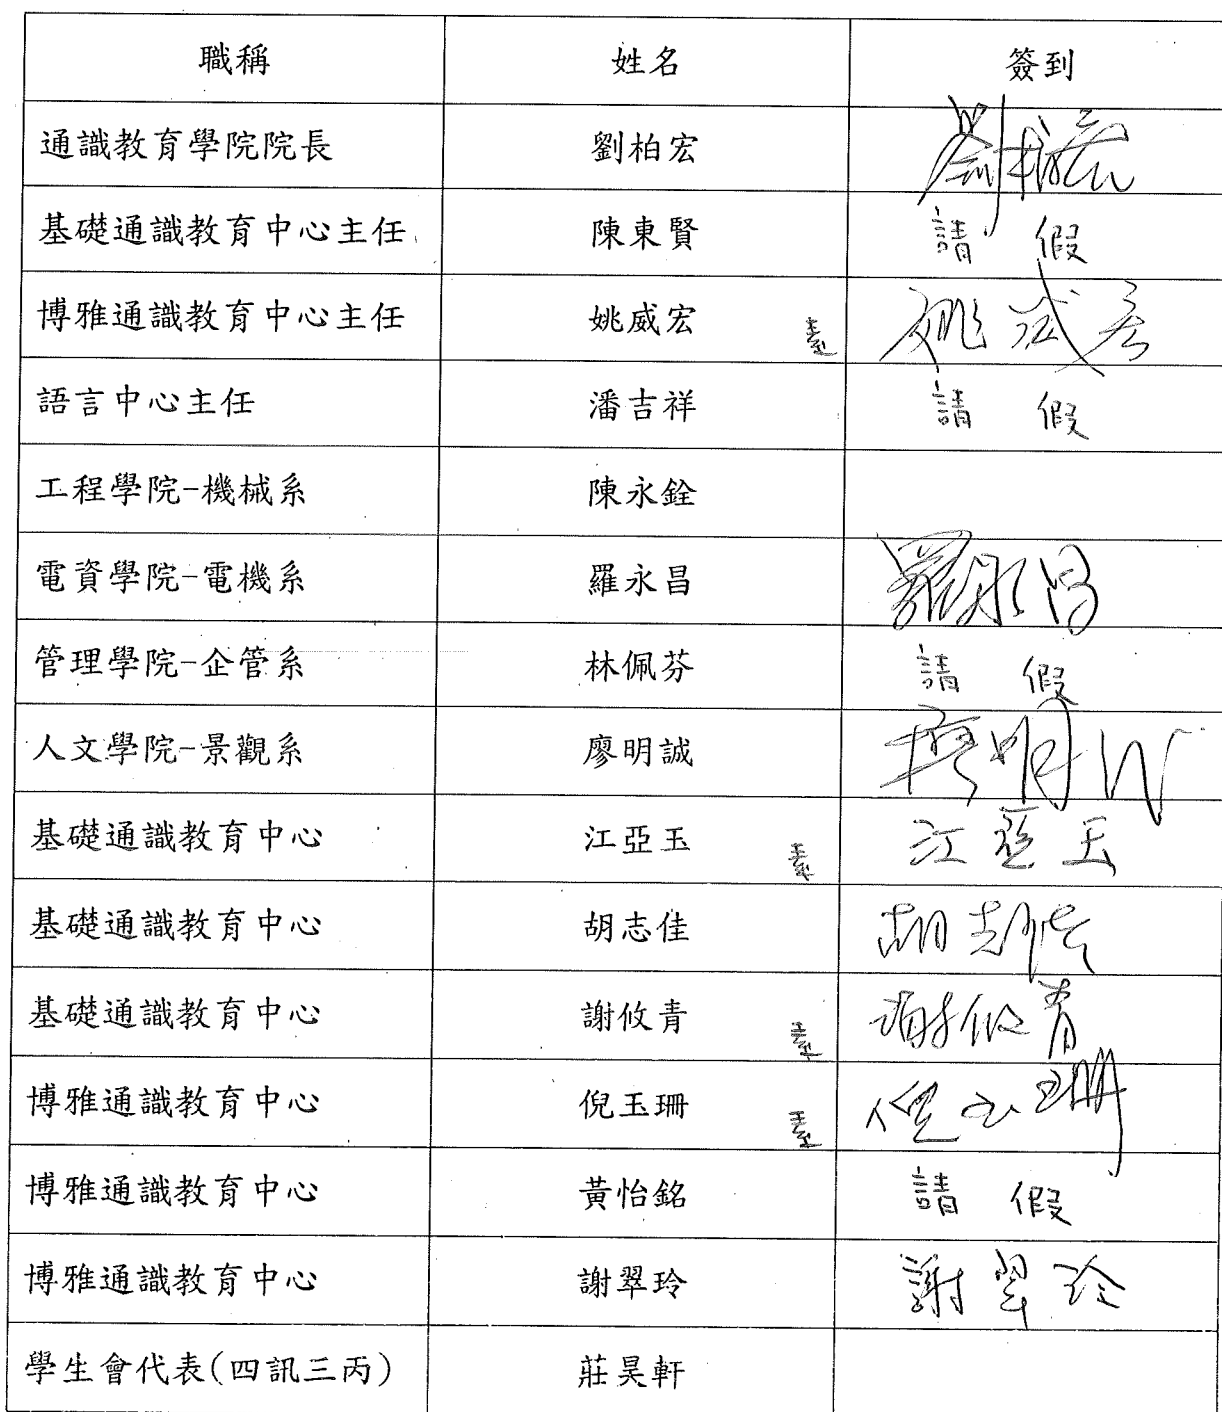 職稱 姓名 簽到
通識教育學院院長 劉柏宏 劉柏宏
基礎通識教育中心主任 陳東賢 請 假
博雅通識教育中心主任 姚威宏 素 姚威宏
語言中心主任 潘吉祥 請 假
工程學院-機械系 陳永銓
電資學院-電機系 羅永昌 羅永昌
管理學院-企管系 林佩芬 請 假
人文學院-景觀系 廖明誠 廖明
基礎通識教育中心 江亞玉 素 江亞玉
基礎通識教育中心 胡志佳 胡志佳
基礎通識教育中心 謝攸青 素 謝攸青
博雅通識教育中心 倪玉珊 素 倪玉珊
博雅通識教育中心 黃怡銘 請 假
博雅通識教育中心 謝翠玲 謝翠玲
學生會代表(四訊三丙) 莊昊軒